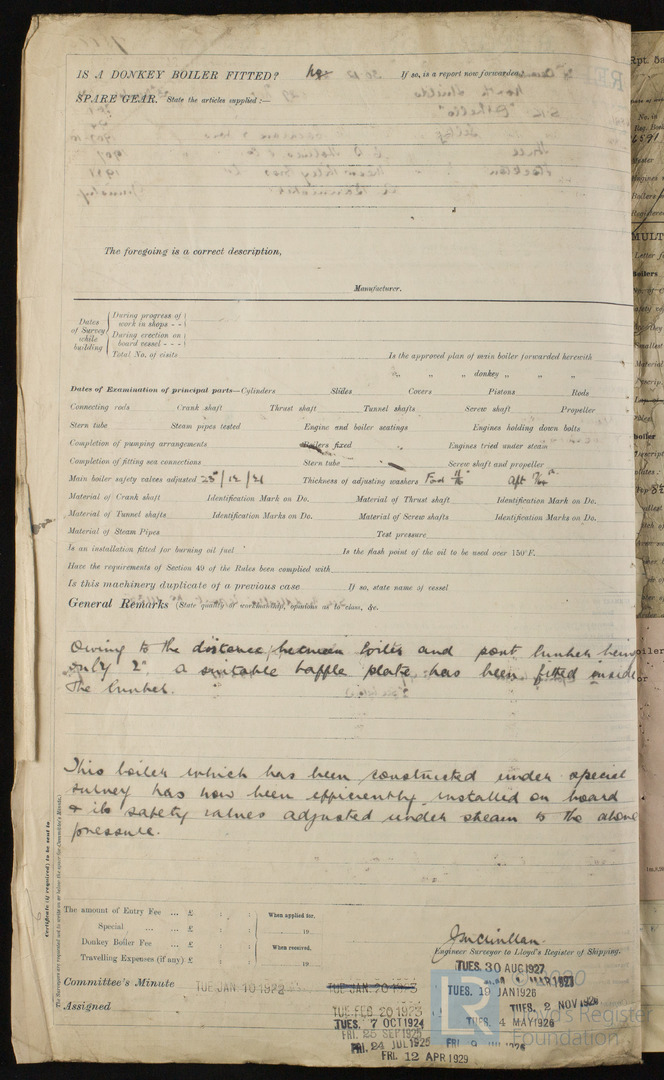 IS A DONKEY BOILER FITTED? No If so, is a report now forwarded?
SPARE GEAR. State the articles supplied:—
The foregoing is a correct description,
Manufacturer.
Dates of Survey while building
During progress of work in shops - -
During erection on board vessel - - -
Total No. of visits
Is the approved plan of main boiler forwarded herewith
" " " donkey " " "
Dates of Examination of principal parts—Cylinders Slides Covers Pistons Rods
Connecting rods Crank shaft Thrust shaft Tunnel shafts Screw shaft Propeller
Stern tube Steam pipes tested Engine and boiler seatings Engines holding down bolts
Completion of pumping arrangements Boilers fixed Engines tried under steam
Completion of fitting sea connections Stern tube Screw shaft and propeller
Main boiler safety valves adjusted 28/12/21 Thickness of adjusting washers Ford Aft
Material of Crank shaft Identification Mark on Do. Material of Thrust shaft Identification Mark on Do.
Material of Tunnel shafts Identification Marks on Do. Material of Screw shafts Identification Marks on Do.
Material of Steam Pipes Test pressure
Is an installation fitted for burning oil fuel Is the flash point of the oil to be used over 150°F.
Have the requirements of Section 49 of the Rules been complied with
Is this machinery duplicate of a previous case If so, state name of vessel
General Remarks (State quality of workmanship, opinions as to class, &c.
Owing to the distance between boiler and port bunker being
only 2" a suitable baffle plate has been fitted inside
the bunker.
This boiler which has been constructed under special
survey has now been efficiently installed on board
& its safety valves adjusted under steam to the above
pressure.
Certificate (if required) to be sent to
The Surveyors are requested not to write on or below the space for Committee's Minute.
The amount of Entry Fee ... £ : : When applied for,
Special ... ... £ : : 19
Donkey Boiler Fee ... £ : : When received,
Travelling Expenses (if any) £ : : 19
Engineer Surveyor to Lloyd's Register of Shipping.
Committee's Minute TUE JAN 10 1922 TUE JAN 20 1923
TUES. 30 AUG 1927
TUES. 19 JAN 1926
Assigned TUE FEB 20 1923 TUES. 2 NOV 1926
TUES. 7 OCT 1924 TUES. 4 MAY 1926
FRI. 25 SEP 1925
FRI. 24 JUL 1925
FRI. 12 APR 1929
LR
Lloyd's Register
Foundation
Rpt. 5a
MULT